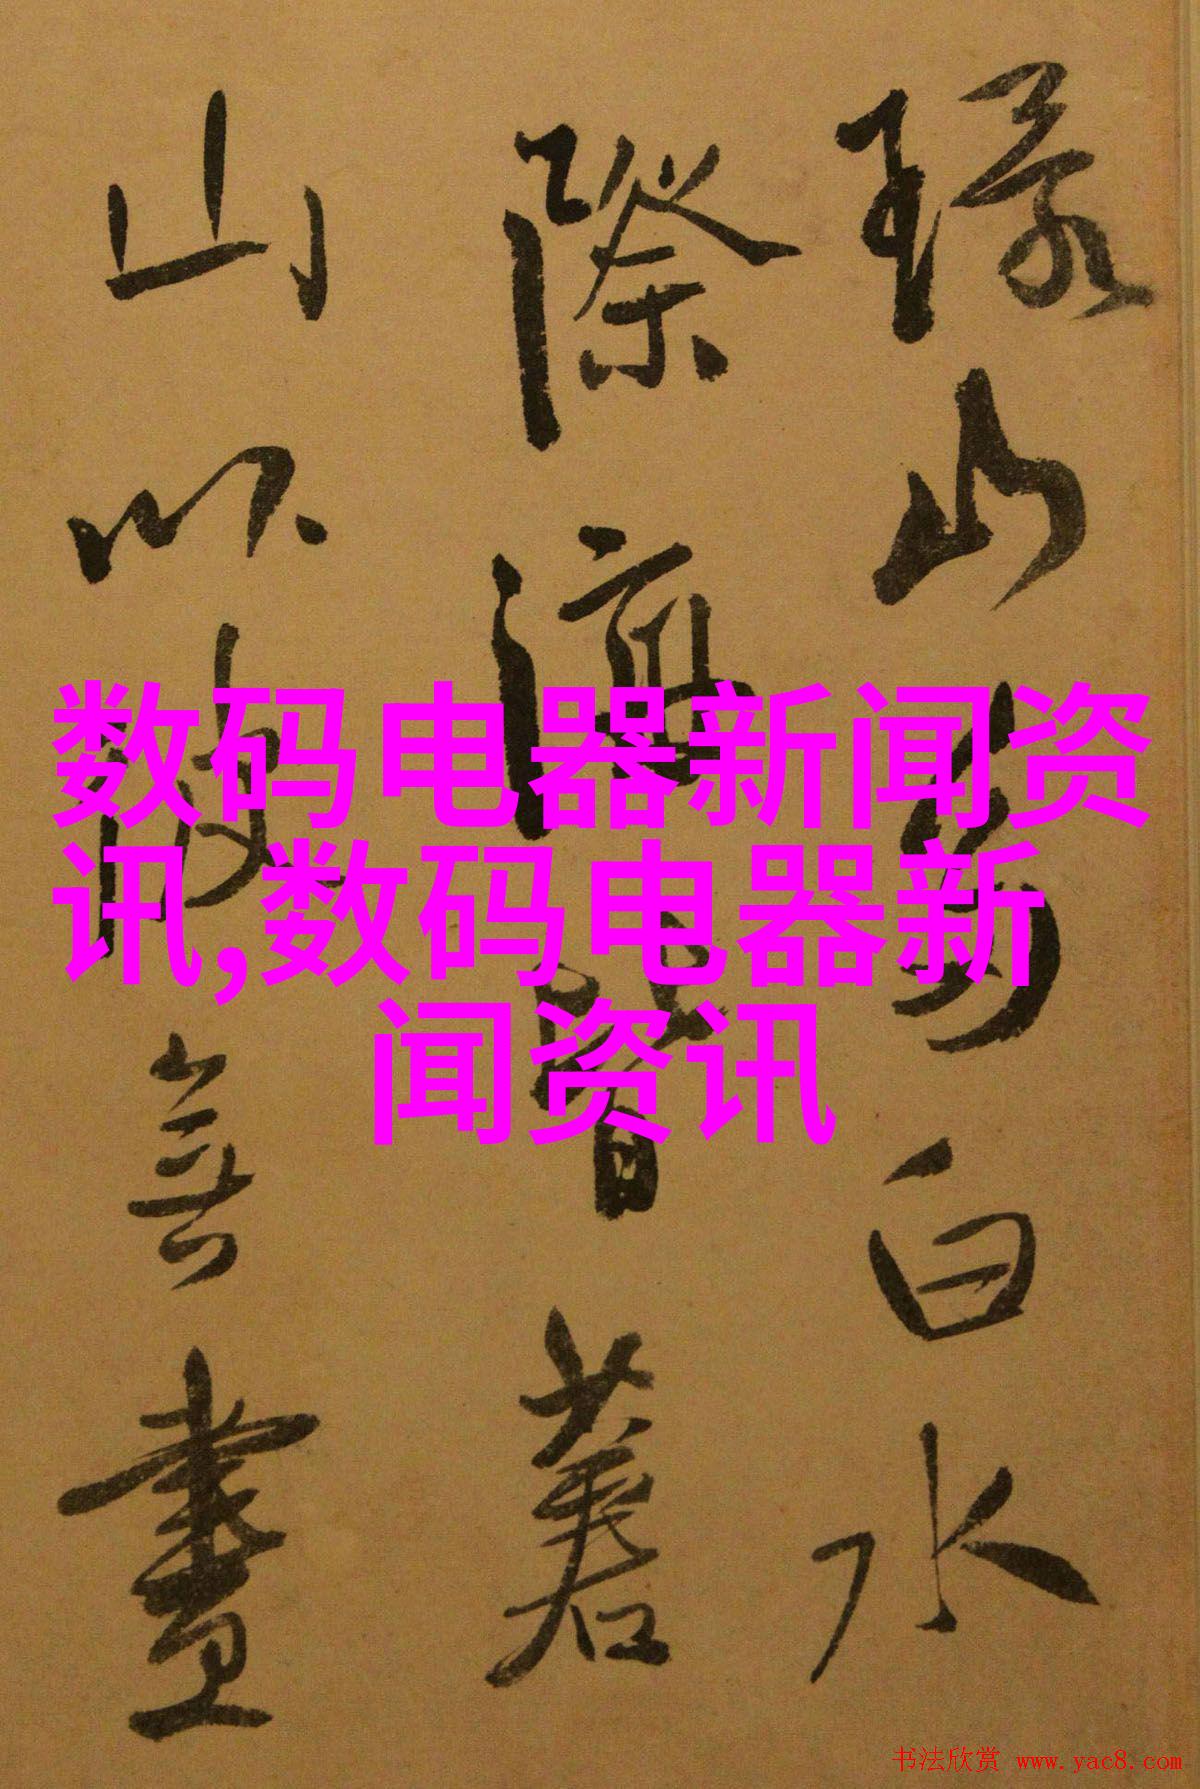 山白水
際皆
山以無盡
数码电器新闻资
讯,数码电器新
闻资讯
书法欣赏 www.yac8.com